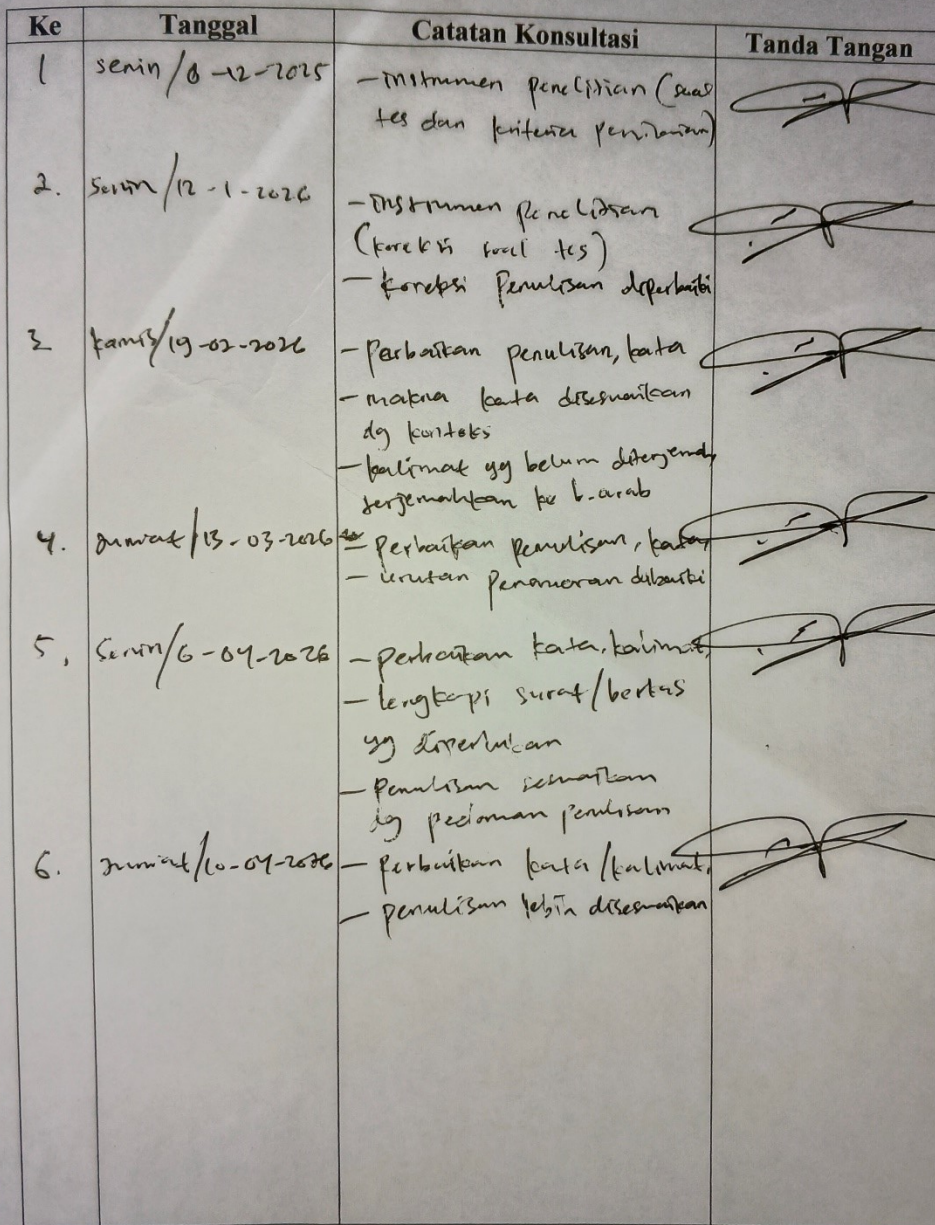 Ke Tanggal Catatan Konsultasi Tanda Tangan
1 senin / 8-12-2025 - instrumen penelitian (soal
tes dan kriteria penilaian)
2. Senin / 12-1-2026 - instrumen penelitian
(koreksi soal tes)
- koreksi Penulisan diperbaiki
3 kamis/19-02-2026 - Perbaikan penulisan, kata
- makna kata disesuaikan
dg konteks
- kalimat yg belum diterjemah
terjemahkan ke b.arab
4. Jum'at / 13-03-2026 - perbaikan penulisan, kata,
- urutan penomoran dibaiki
5. Senin/6-04-2026 - perbaikan kata, kalimat,
- lengkapi surat/berkas
yg diperlukan
- Penulisan sesuaikan
dg pedoman penulisan
6. Jum'at/10-04-2026 - Perbaikan kata/kalimat,
- penulisan lebih disesuaikan